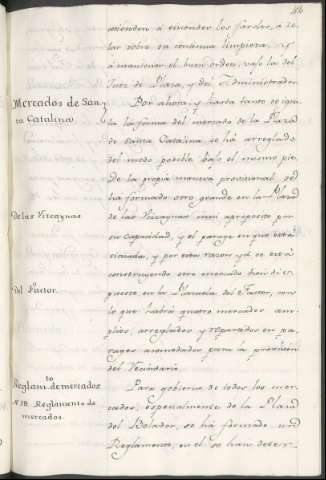 atiendan á encender los faroles, á ze-
lar sobre su continua limpieza, y á
á mantener el buen orden, vajo la del
Juez de Plaza, y del Administrador.
Mercados de San-
ta Catalina
Por ahora, y hasta tanto se igua-
la la forma del mercado de la Plaza
de Santa Catalina, se há arreglado
del modo posible bajo el mismo pie.
De la propia manera provicional se
há formado otro grande en la Plaza
De las Vizcaynas
de las Vizcaynas mui aproposito por
su capacidad, y el parage en que está
situada, y por esta razon yá se está
construyendo otro mercado bien dis-
Del Factor.
puesto en la Plazuela del Factor, con
lo que habrá quatro mercados am-
plios, arreglados y repartidos en pa-
rages acomodados para la provision
del Vecindario.
Reglam.to de mercados
Nº 18. Reglamento de
mercados.
Para gobierno de todos los mer-
cados, especialmente de la Plaza
del Volador, se há formado un
Reglamento, en el se han deter-